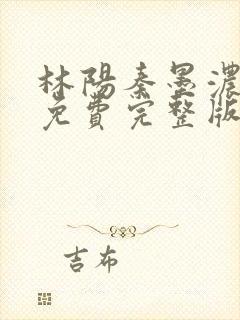 林陽秦墨濃
免費完整版
吉布